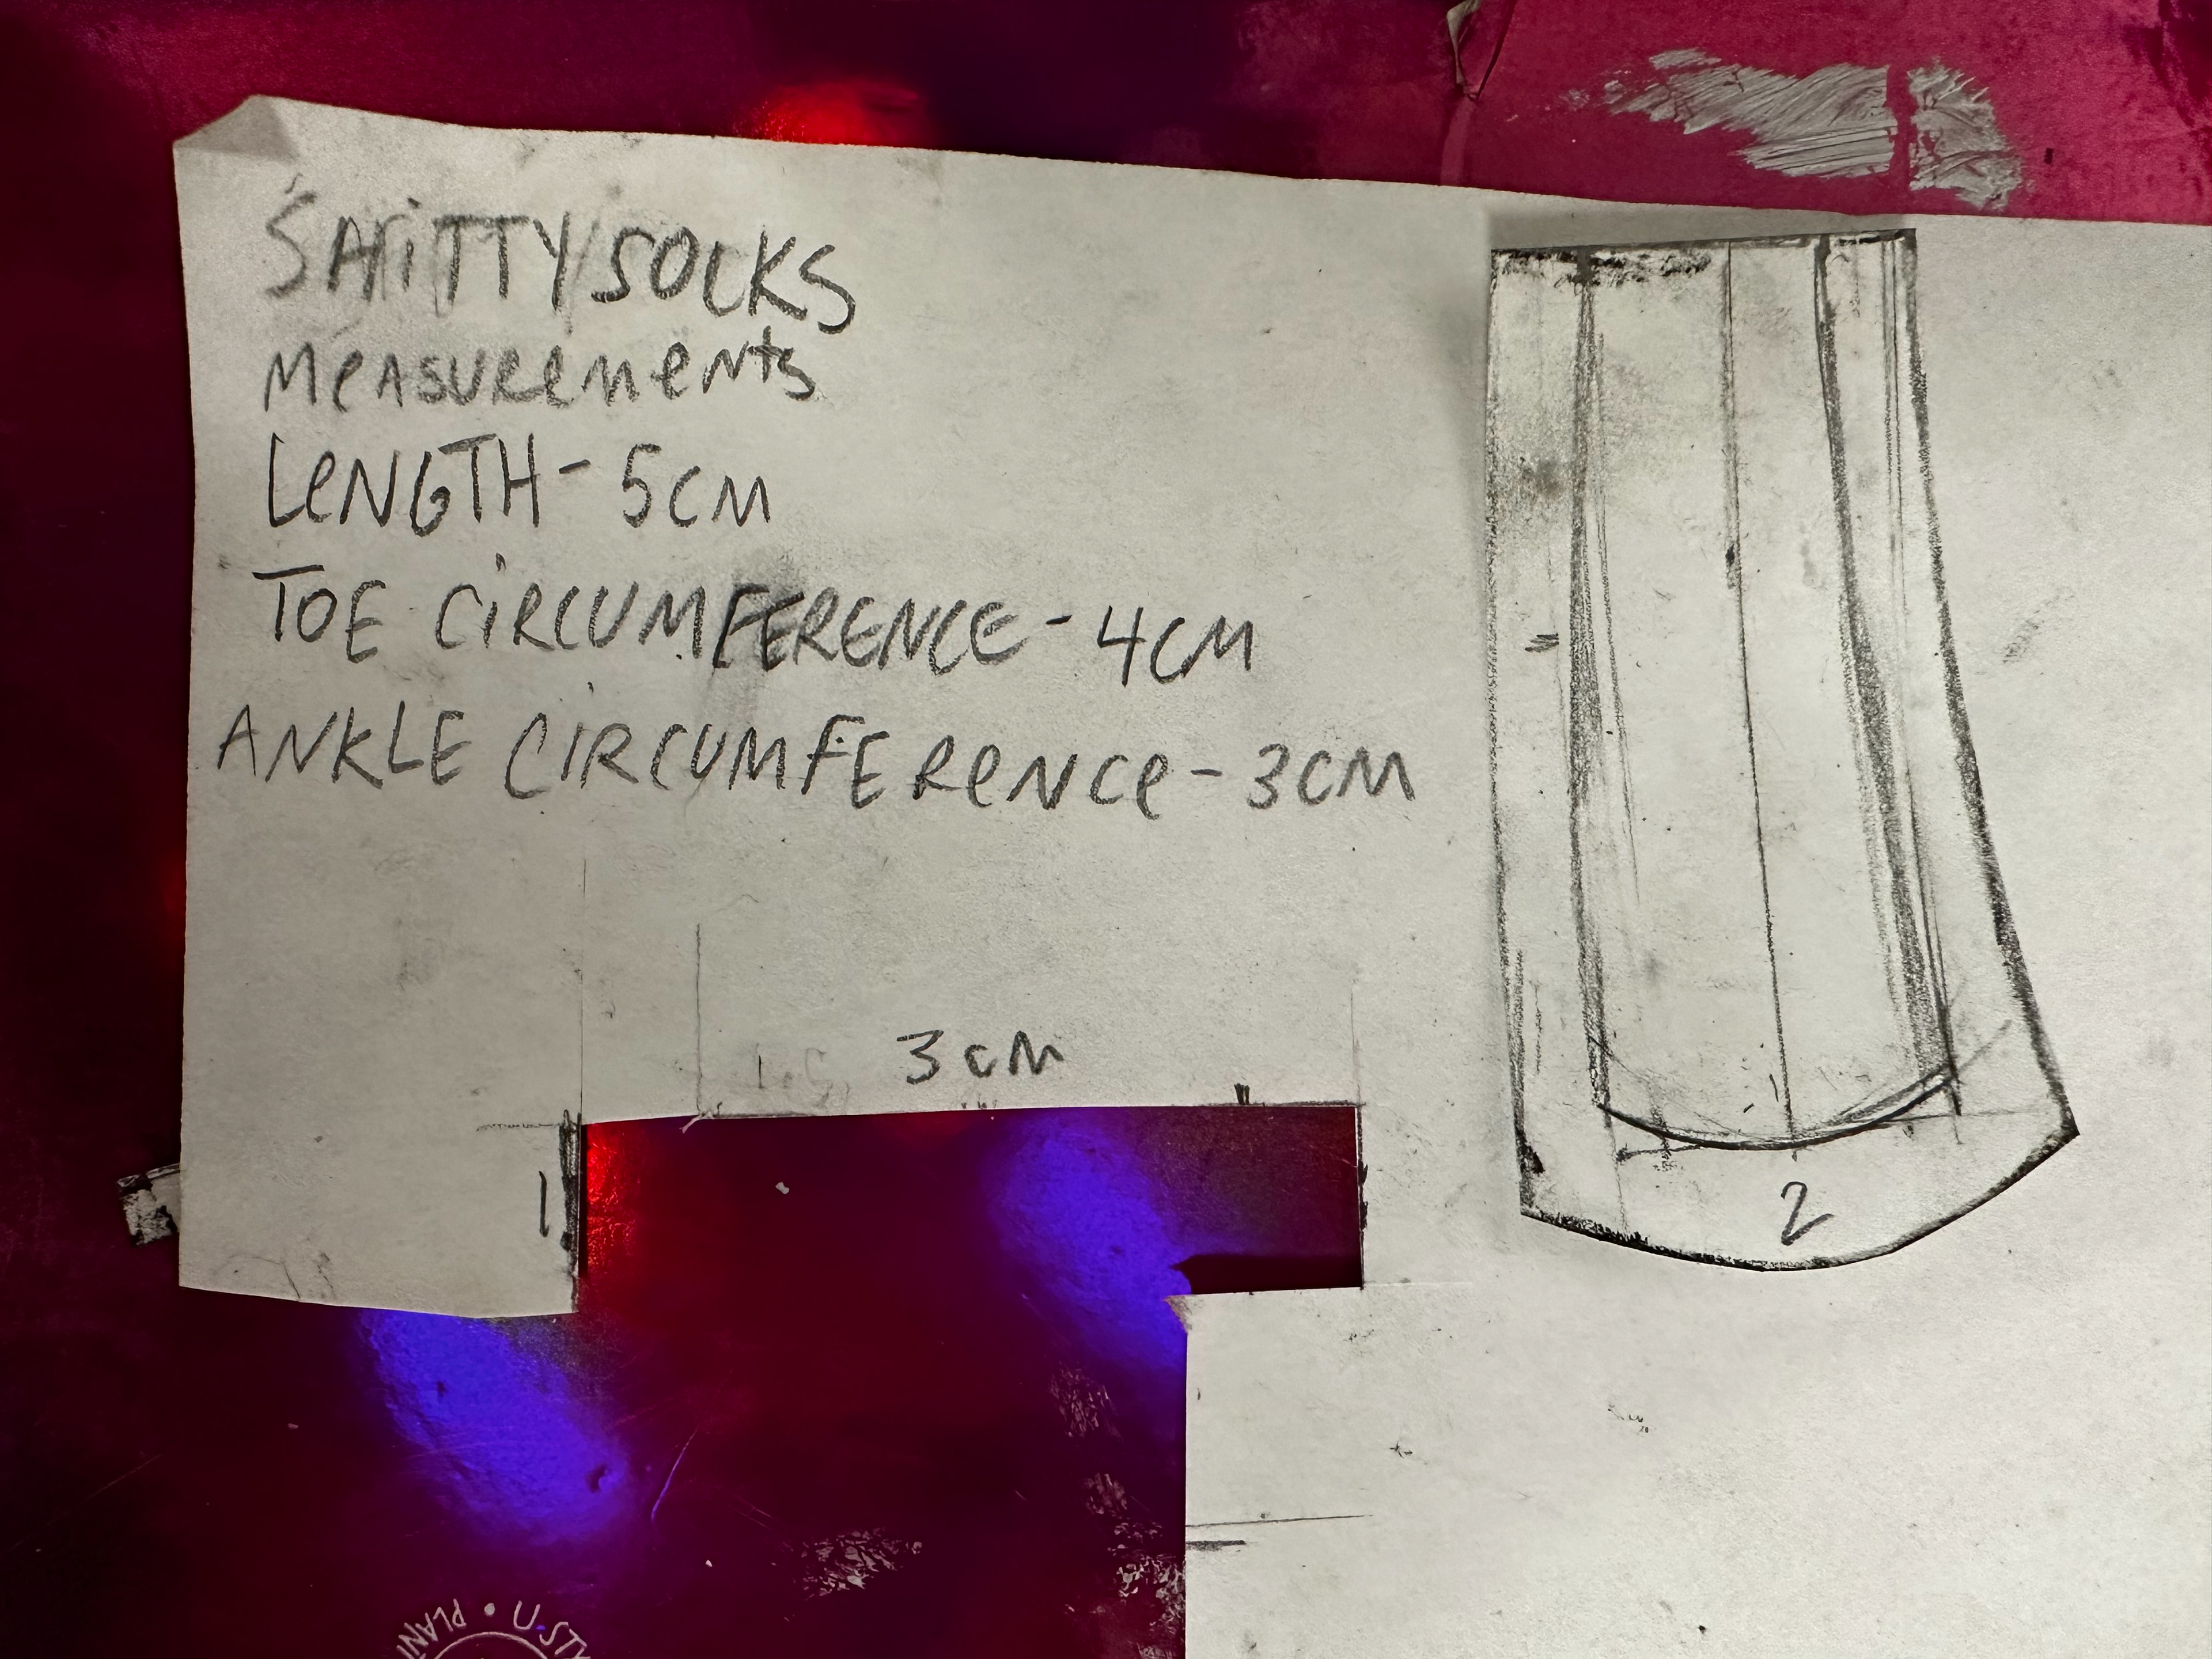 SHiTTY SOCKS
MeASUReMeNts
LeNGTH - 5CM
TOE CiRCUMFERENCE - 4CM
ANKLE CiRCUMFEReNCe - 3CM
3 cM
1
2
PLAN • U.STY